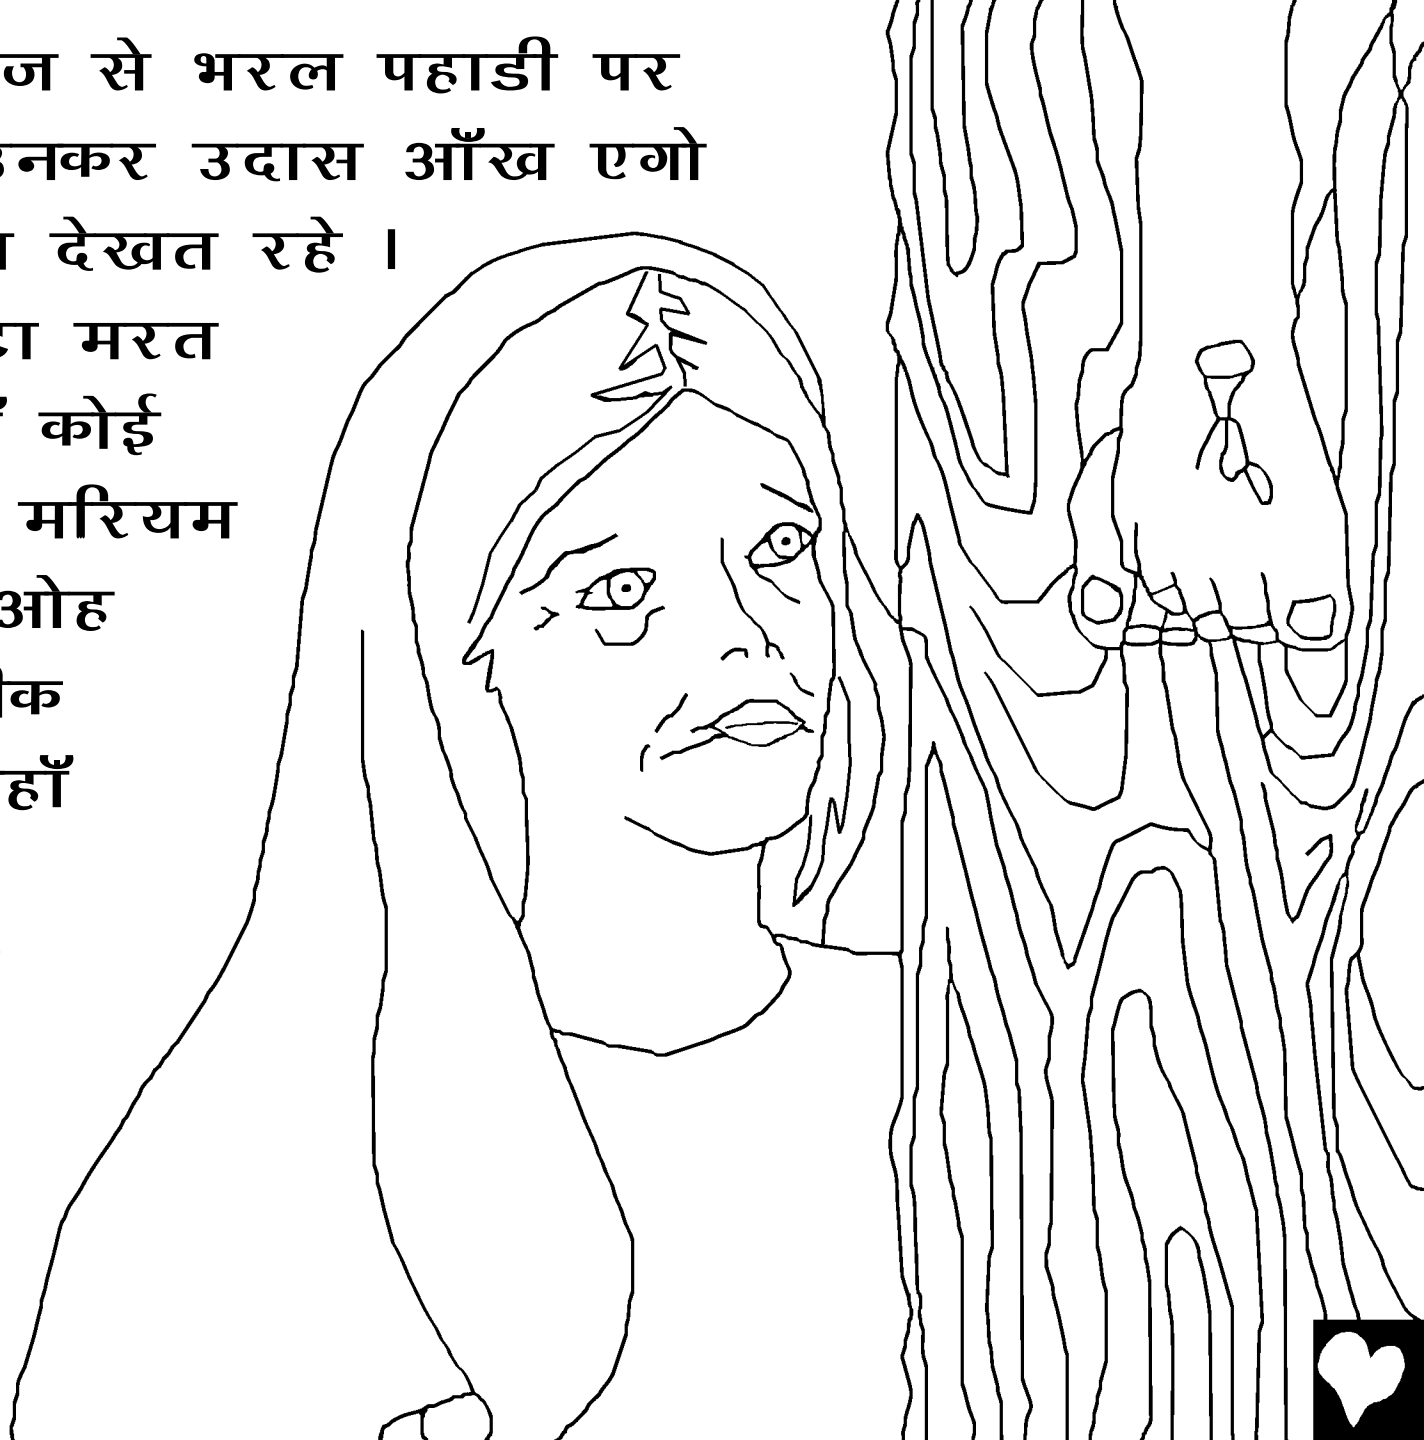 से भरल पहाडी पर
उनकर उदास आँख एगो
देखत रहे ।
मरत
कोई
मरियम
ओह